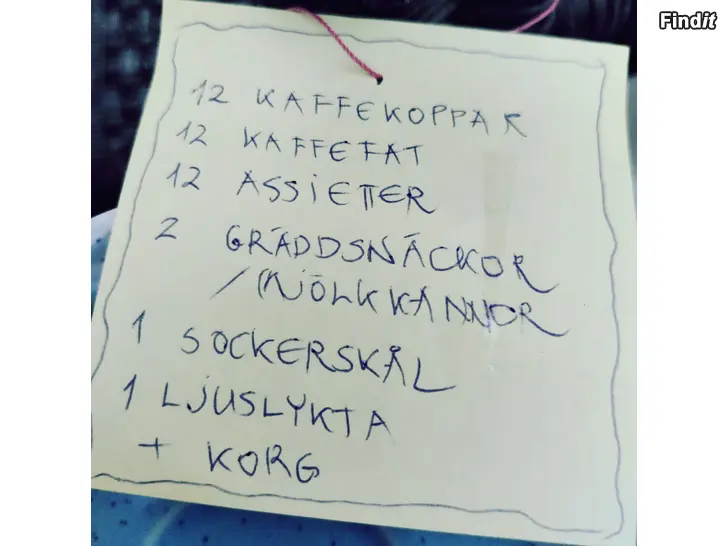 Findit
12 KAFFEKOPPAR
12 KAFFEFAT
12 ASSIETTER
2 GRÄDDSNÄCKOR
/MJÖLKKANNOR
1 SOCKERSKÅL
1 LJUSLYKTA
+ KORG